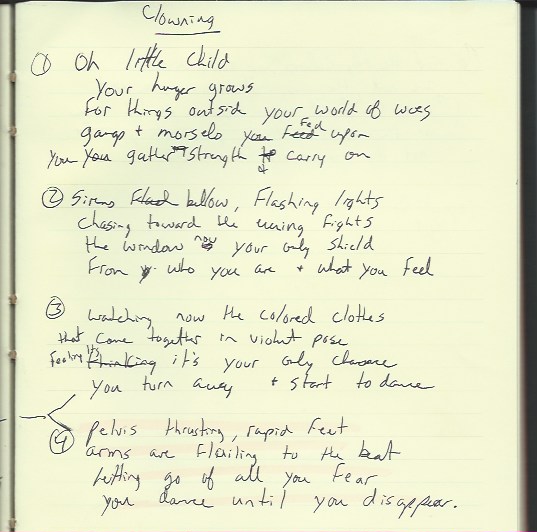 Clowning
① Oh little child
Your hunger grows
For things outside your world of woes
gangs + morsels you feed Fed upon
You you gather strength to + carry on
② Sirens Flash bellow, Flashing lights
Chasing toward the evening Fights
the window now your only shield
From y who you are + what you Feel
③ watching now the colored clothes
that come together in violent pose
Feeling its thinking it's your only chance
You turn away + start to dance
④ Pelvis thrusting, rapid Feet
arms are Flailing to the beat
Letting go of all you Fear
you dance until you disappear.